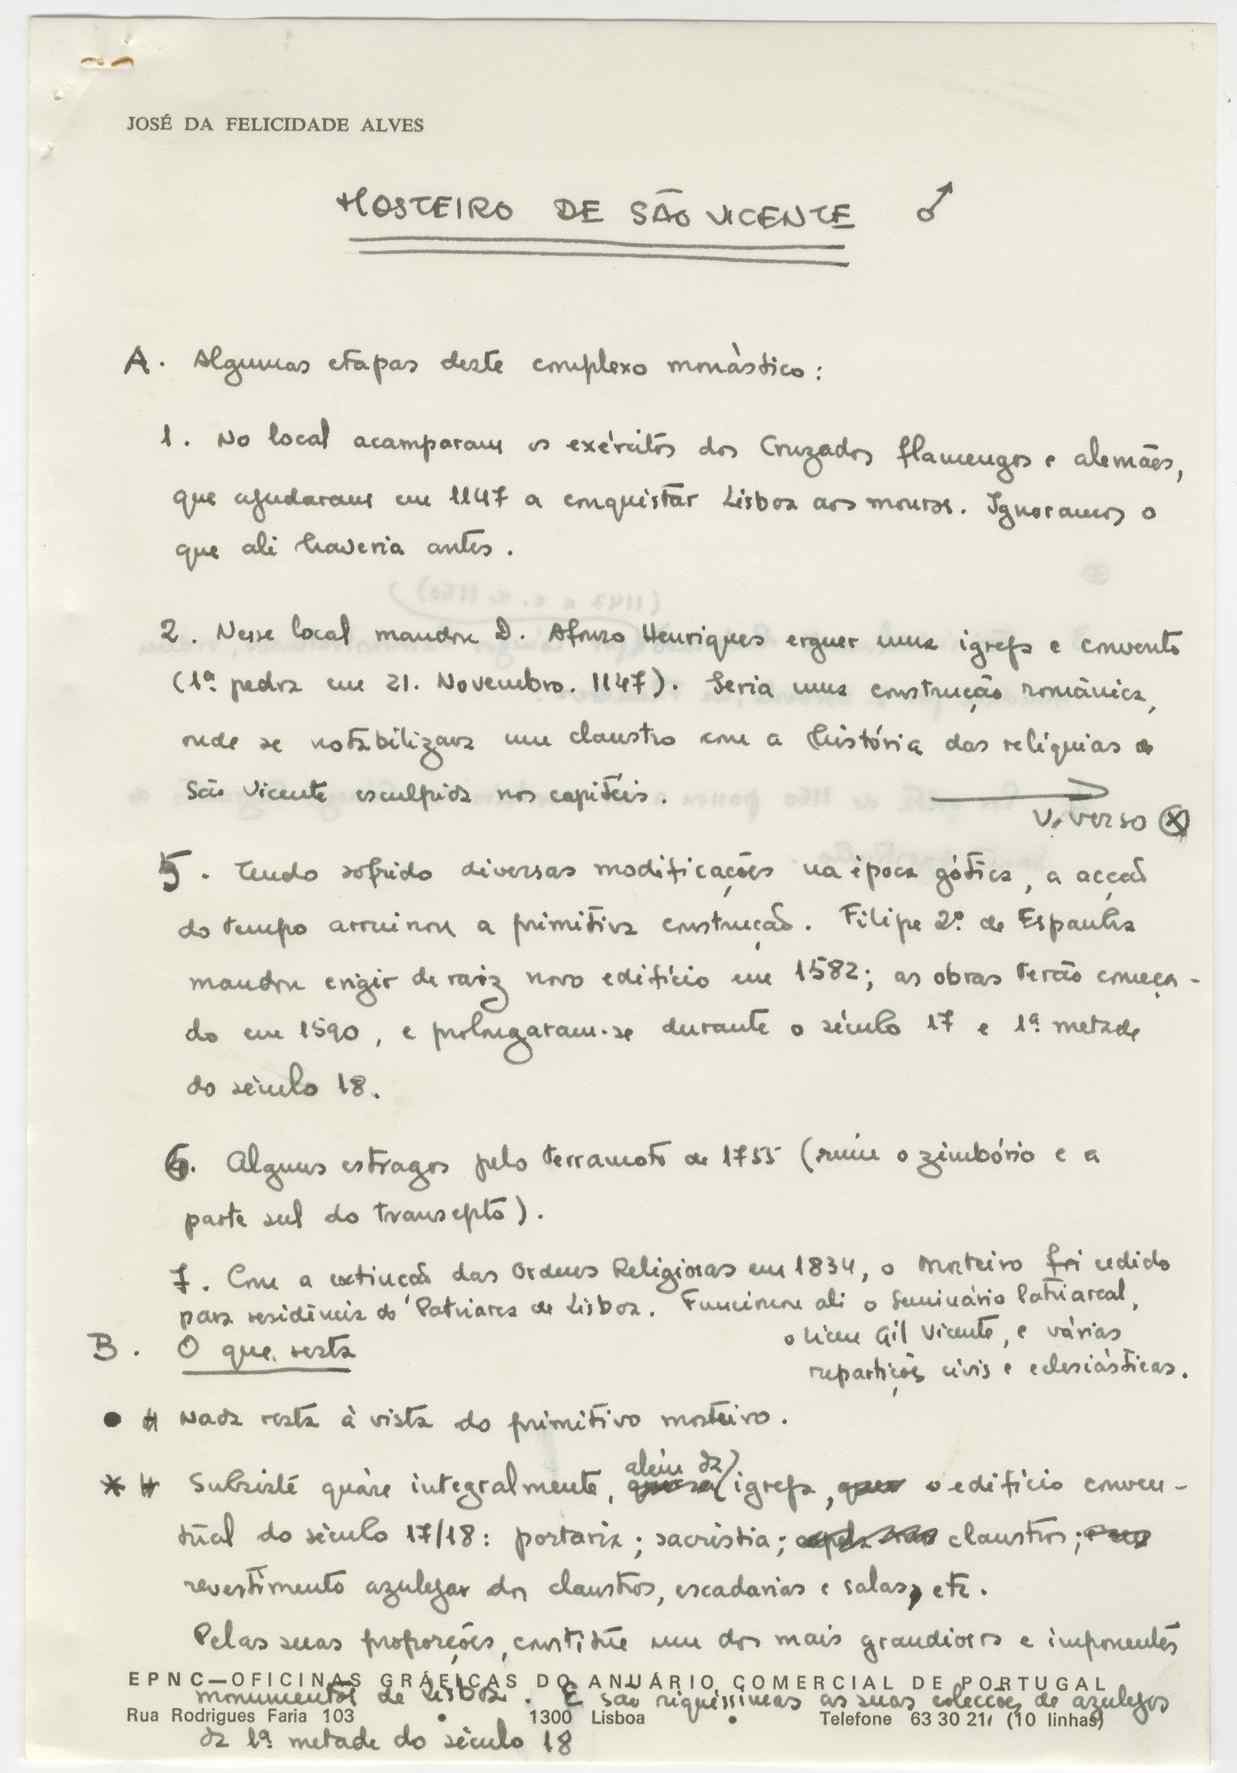 JOSÉ DA FELICIDADE ALVES
MOSTEIRO DE SÃO VICENTE ♂
A. Algumas etapas deste complexo monástico:
1. No local acamparam os exércitos dos Cruzados flamengos e alemães,
que ajudaram em 1147 a conquistar Lisboa aos mouros. Ignoramos o
que ali haveria antes.
2. Nesse local mandou D. Afonso Henriques erguer uma igreja e convento
(1ª pedra em 21. Novembro. 1147). Seria uma construção românica,
onde se notabilizava um claustro com a história das relíquias de
São Vicente esculpida nos capitéis.
V. verso ⊗
5. Tendo sofrido diversas modificações na época gótica, a acção
do tempo arruinou a primitiva construção. Filipe 2º de Espanha
mandou erigir de raiz novo edifício em 1582; as obras terão começa-
do em 1590, e prolongaram-se durante o século 17 e 1ª metade
do século 18.
6. Alguns estragos pelo terramoto de 1755 (ruiu o zimbório e a
parte sul do transepto).
7. Com a extinção das Ordens Religiosas em 1834, o mosteiro foi cedido
para residência do Patriarca de Lisboa. Funcionou ali o Seminário Patriarcal,
o liceu Gil Vicente, e várias
repartições civis e eclesiásticas.
B. O que resta
● # Nada resta à vista do primitivo mosteiro.
* # Subsiste quáse integralmente, além da igreja, o edifício conven-
tual do século 17/18: portaria; sacristia; claustros;
revestimento azulejar dos claustros, escadarias e salas, etc.
Pelas suas proporções, constitue um dos mais grandiosos e imponentes
EPNC—OFICINAS GRÁFICAS DO ANUÁRIO COMERCIAL DE PORTUGAL
monumentos de Lisboa. E são riquíssimas as suas colecções de azulejos
Rua Rodrigues Faria 103 • 1300 Lisboa • Telefone 63 30 21 (10 linhas)
da 1ª metade do século 18